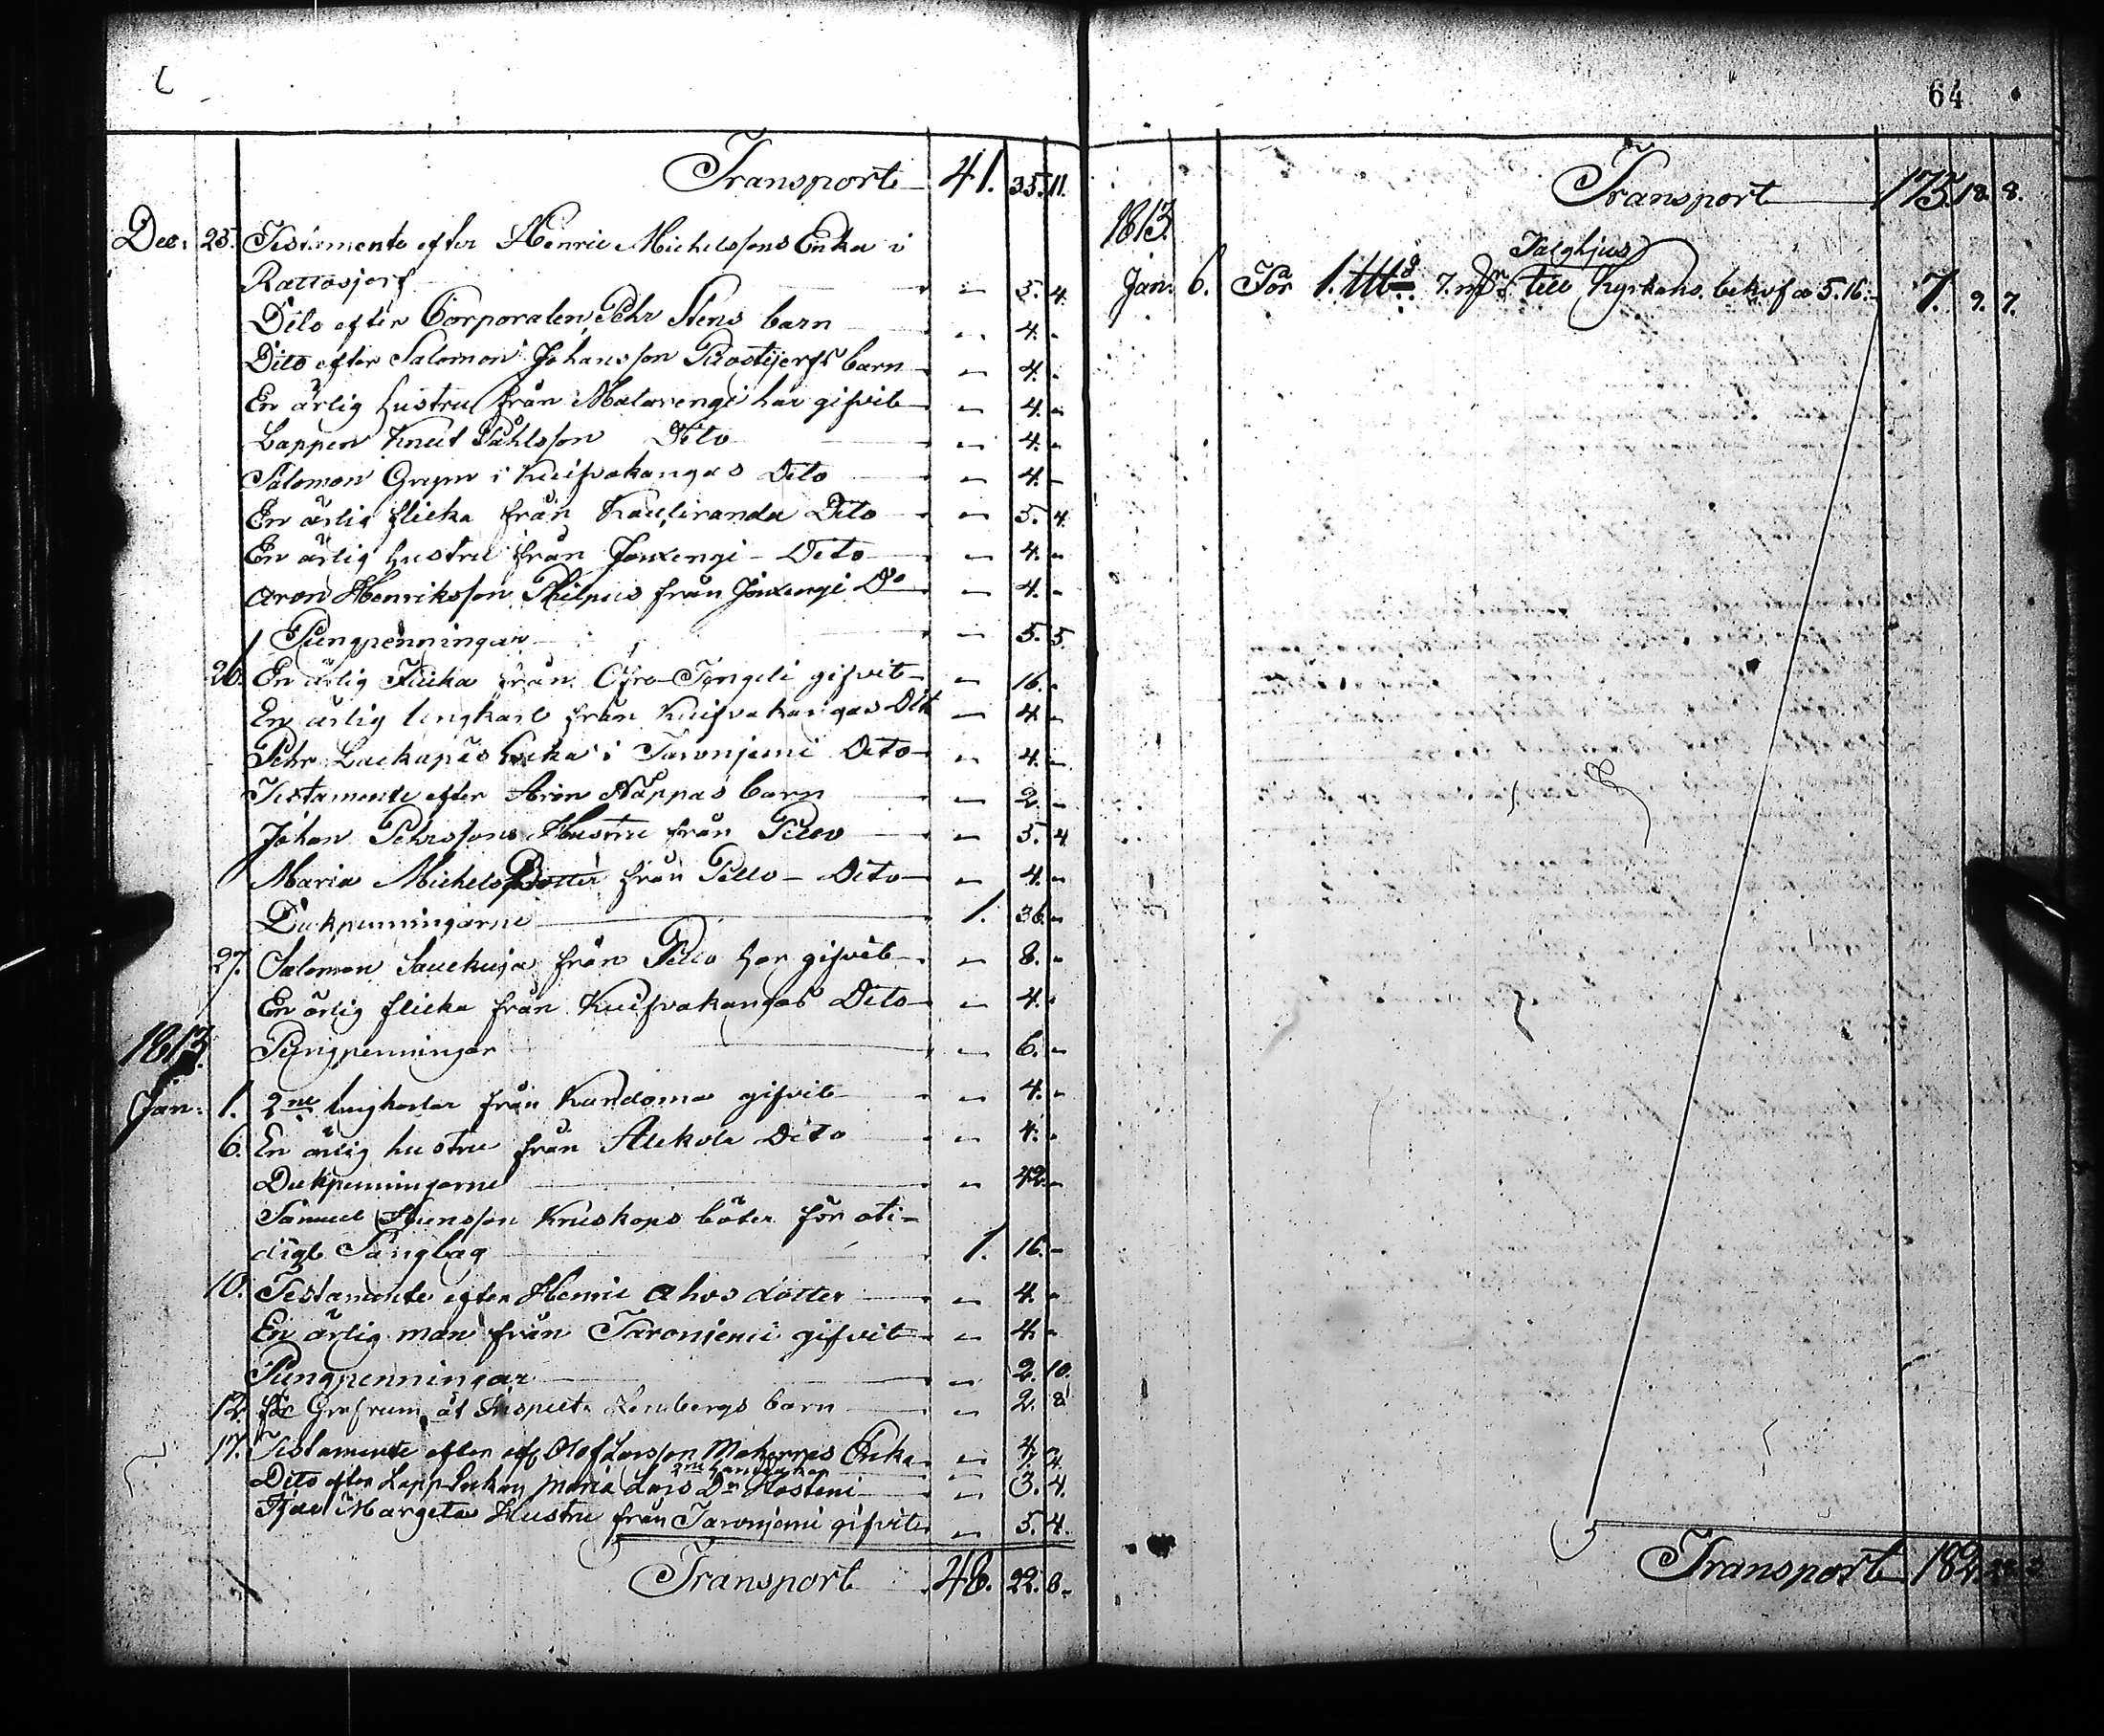 Transport 41. 35. 11.
Dec: 25. Testamente efter Henric Michelssons Enka i
Rattosjerf - 5. 4.
Dito efter Corporalen Pehr Stens barn - 4. -
Dito efter Salomon Johansson Puostijerfs barn - 4. -
En ärlig hustru från Matarengi har gifvit - 4. -
Lappen Knut Påhlsson Dito - 4. -
Salomon Greger i Kuifvakangas Dito - 4. -
En ärlig flicka från Kauliranda Dito - 5. 4.
En ärlig hustru från Jouxengi - Dito - 4. -
Aron Henriksson Philpus från Jouxengi Do - 4. -
Pungpenningar - 5. 5.
26. En ärlig Flicka från Öfre-Tengeli gifvit - 16. -
En ärlig ungkarl från Kuifvakangas Dito - 4. -
Pehr Lackapäs Enka i Taronjemi Dito - 4. -
Testamente efter Aron Näppas barn - 2. -
Johan Pehrssons Hustru från Pello - 5. 4.
Maria Michelsdotter från Pello - Dito - 4. -
Dukpenningarne 1. 36. -
27. Salomon Sauckuja från Pello har gifvit - 8. -
En ärlig flicka från Kuifvakangas Dito - 4. -
1813. Pungpenningar - 6. -
Jan: 1. 2ne ungkarlar från Kardoma gifvit - 4. -
6. En ärlig hustru från Alckula Dito - 4. -
Dukpenningarne - 42. -
Samuel Hansson Kruskops böter för oti-
digt Sänglag 1. 16. -
10. Testamente efter Henric Ahos dotter - 4. -
En ärlig man från Taronjemi gifvit - 4. -
Pungpenningar - 2. 10.
12. för Grafrum åt Inspect. Lembergs barn - 2. 8
17. Testamente efter Olof Larsson Makarnes Enka - 4. 2.
2ne
Dito efter Lapp Enkan Maria Lars Dr - 3. 4.
Margeta Hustru från Taronjemi gifvit - 5. 4.
Transport 48. 22. 8.
64
Transport 175. 18. 8.
1813.
Talghjus
Jan: 6. För 1. 7. till Kyrkans behof a 5.16. 7. 9. 7.
Transport 182.